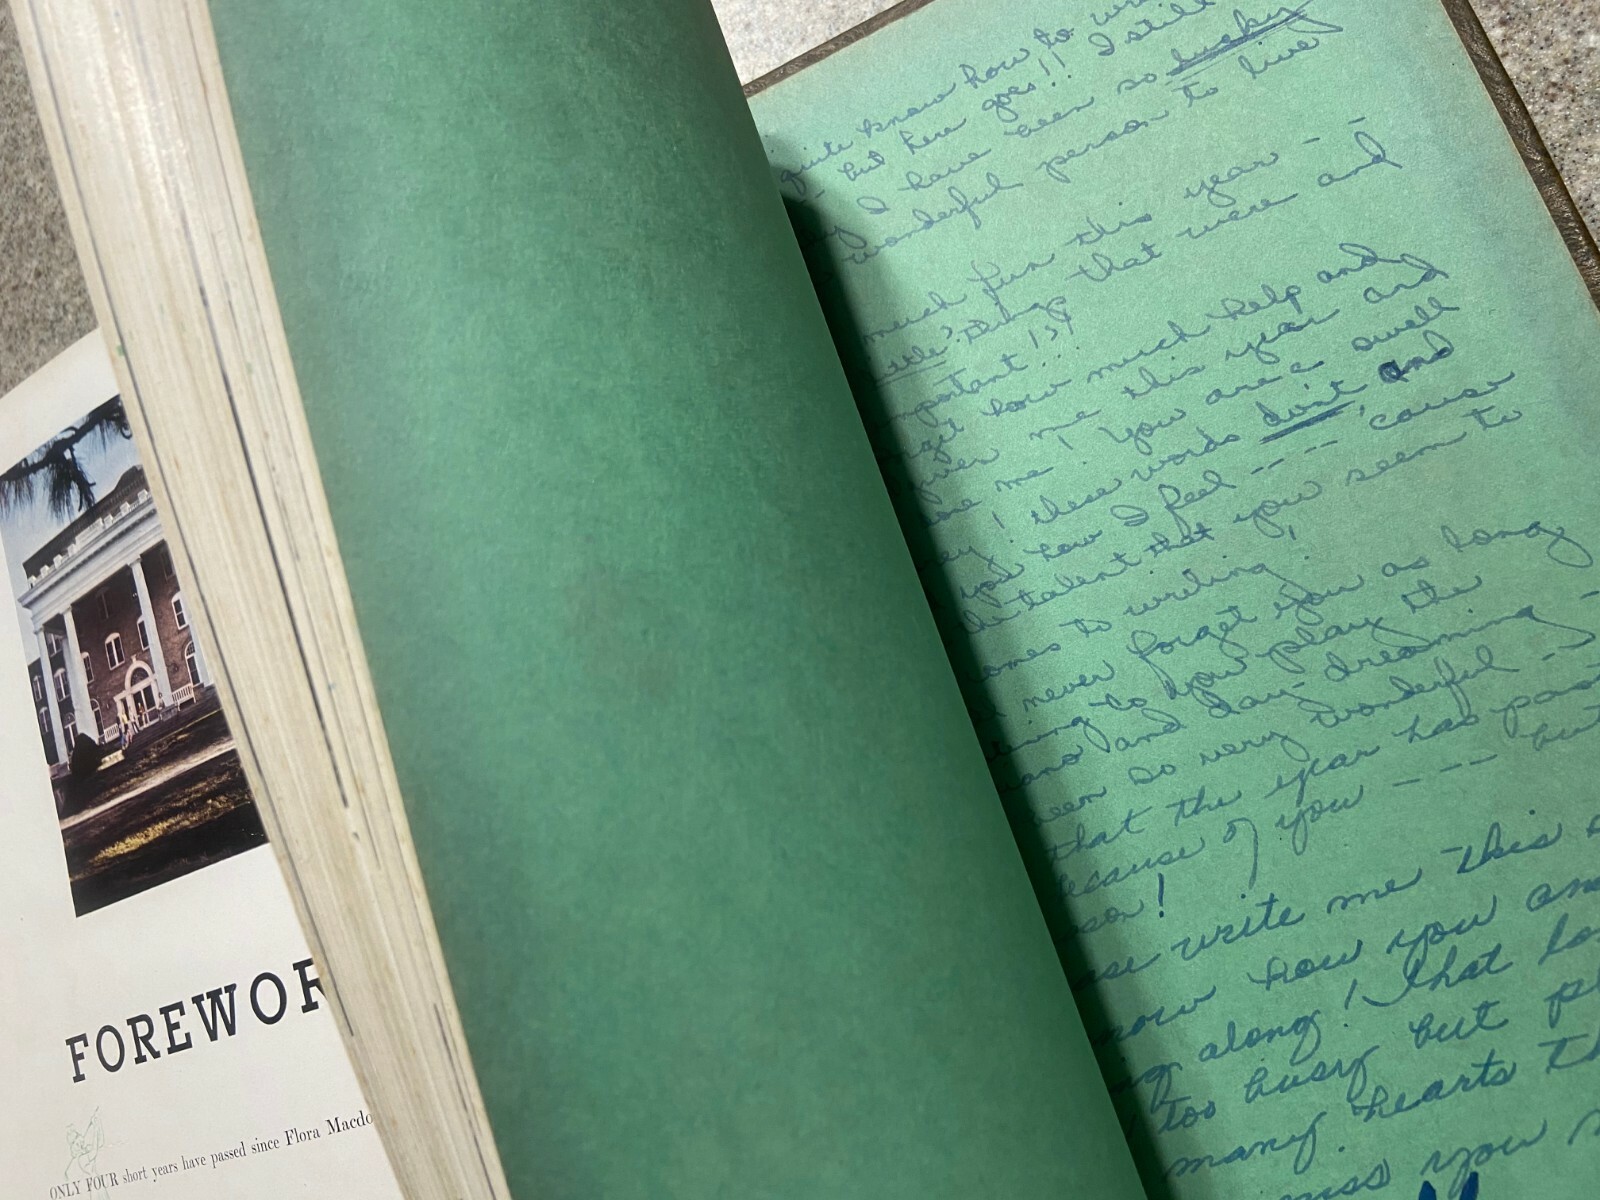 FOREWOR
ONLY FOUR short years have passed since Flora Macdo
quite know how to
but here goes!! I still
I have been so lucky
wonderful person to live
much fun this year - -
little "things" that were and
mportant!?!
get how much help and
me this year and
me! You are a swell
! these words don't and
you how I feel ---- cause
talent that you seem to
omes to writing!
never forget you as long
ning to you play the
ano and day-dreaming -
een so very wonderful --
that the year has past
ecause of you --- but
son!
ase write me this
now how you an
ng along! That
too busy but pl
many hearts th
iss you